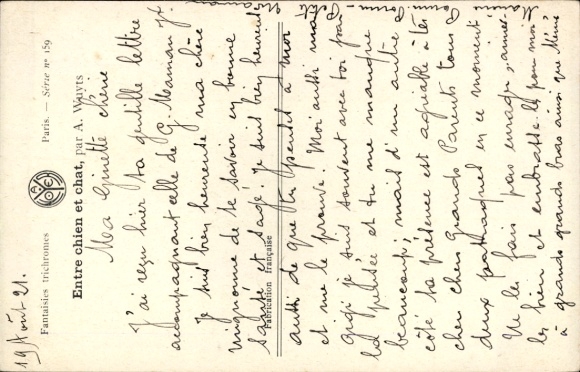 19 Août 21.
Fantaisies trichromes
Paris. — Série n° 159
Entre chien et chat, par A. Wuyts
Fabrication française
Ma Ginette chérie
J'ai reçu hier ta gentille lettre
accompagnant celle de G. Maman
Je suis bien heureuse ma chère
mignonne de te savoir en bonne
santé et sage. Je suis bien heureuse
aussi de que tu penses à moi
et me le prouve. Moi aussi ma
gigi je suis souvent avec toi par
la pensée et tu me manques
beaucoup; mais d'un autre
côté ta présence est agréable à tes
chers Grands Parents tous
deux patraques en ce moment
Ne les fais pas enrager, aime-
les bien et embrasse-les pour moi
à grands grands bras ainsi que Mémé,